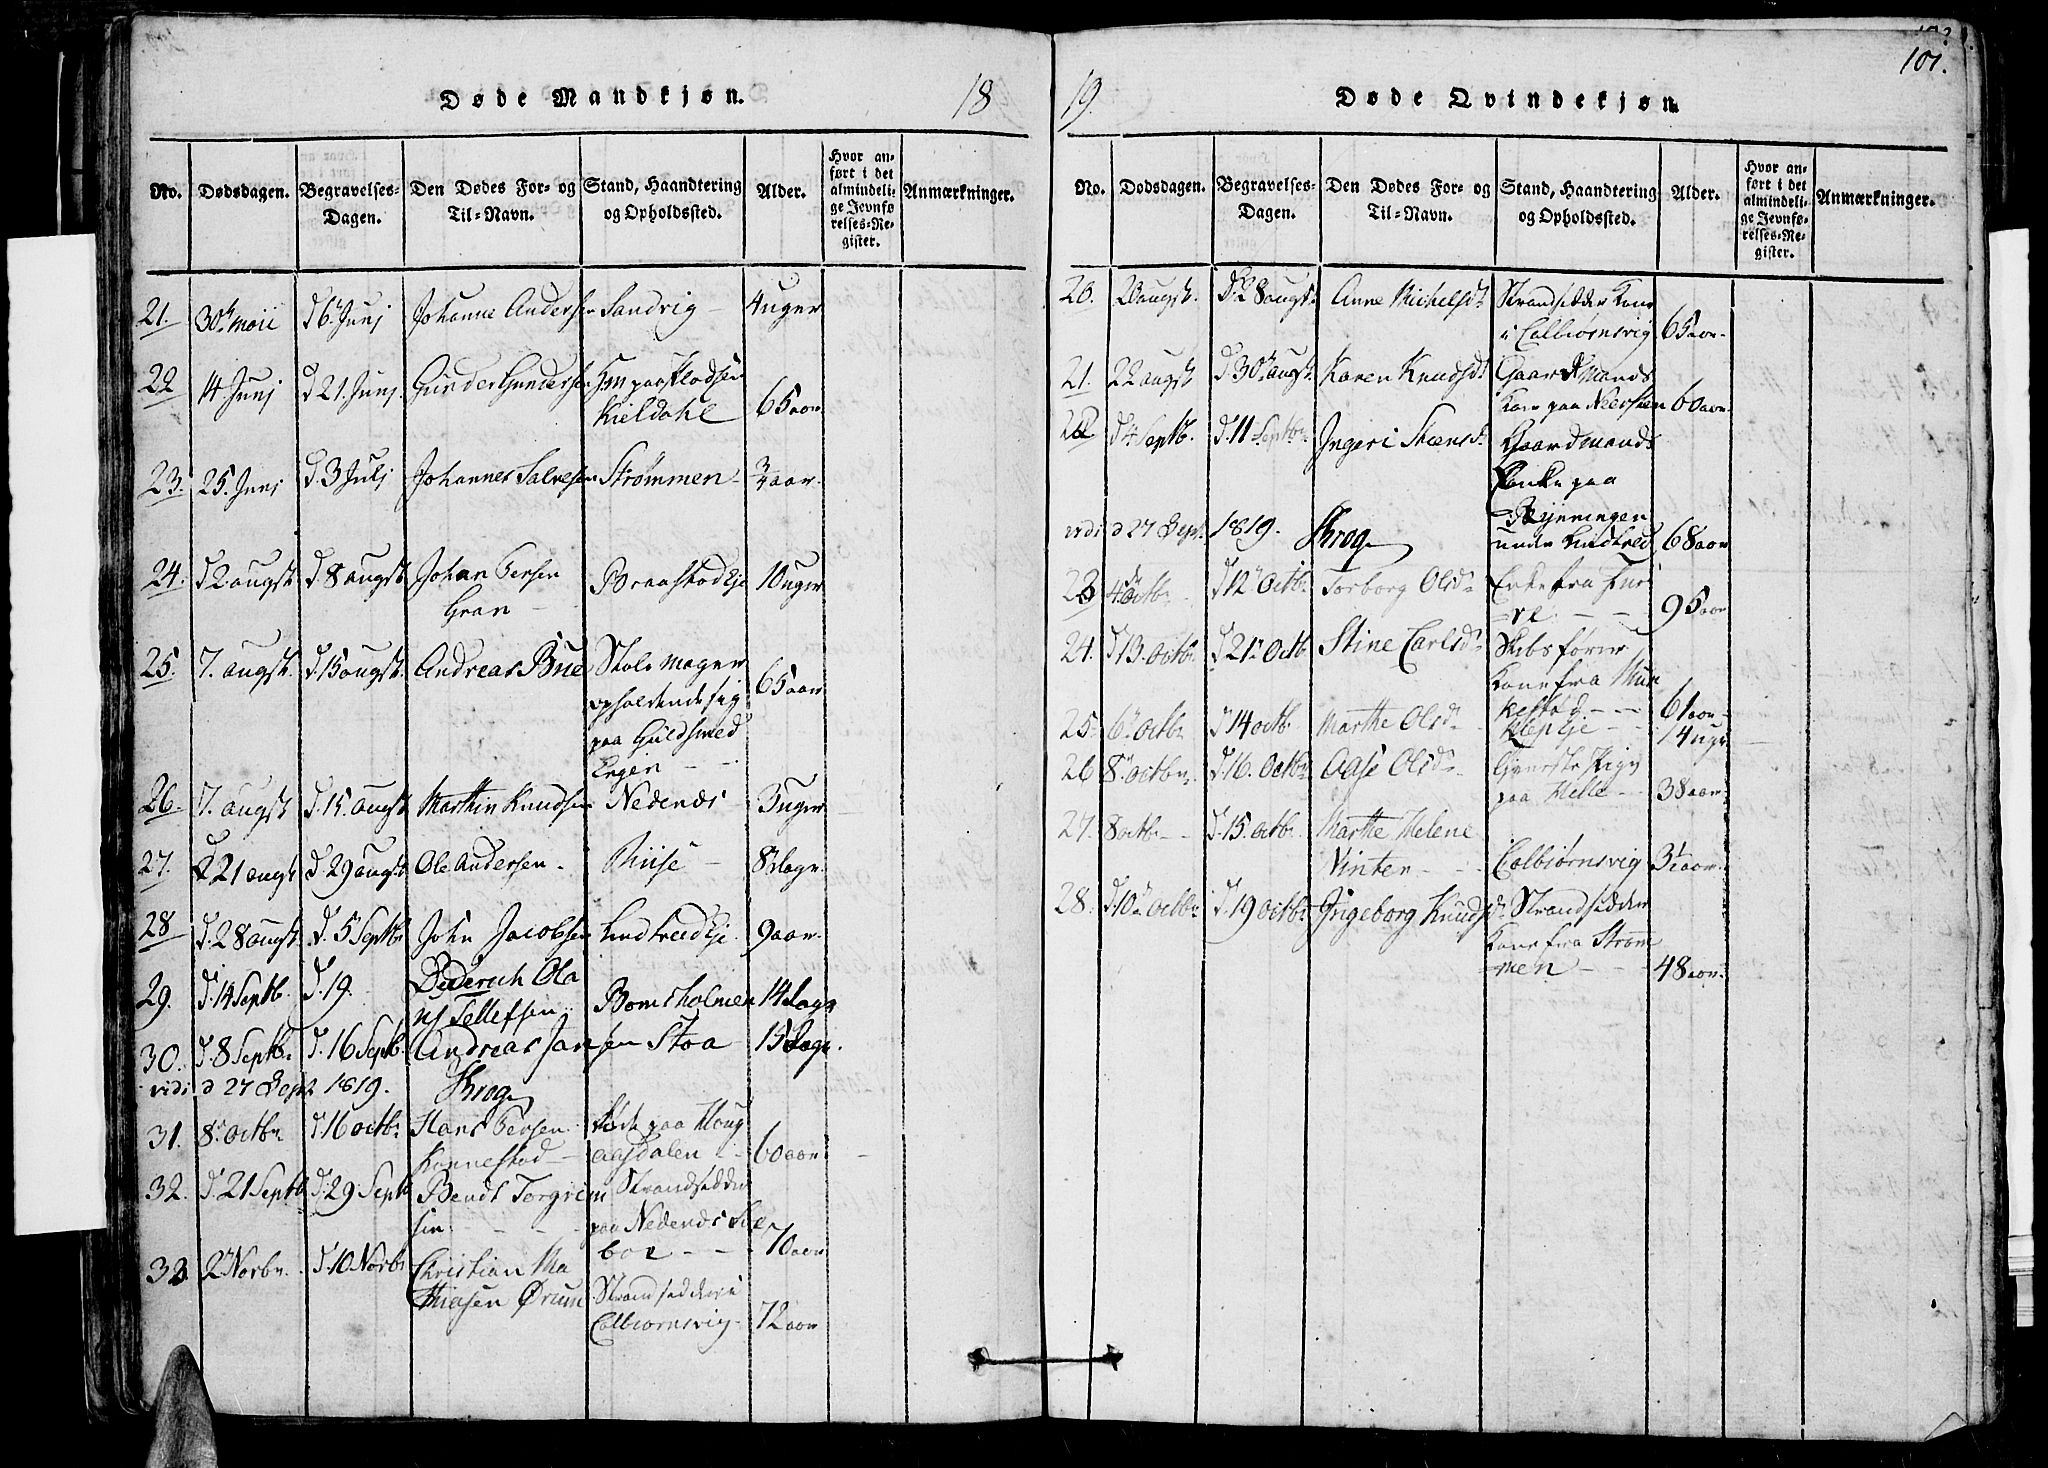 101.
Døde Mandkjøn. 18
No. Dødsdagen. Begravelses-Dagen. Den Dødes For- og Til-Navn. Stand, Haandtering og Opholdssted. Alder. Hvor anført i det almindelige Jevnførelses-Register. Anmærkninger.
21. 30te maii d 6te Junj Johanne Andersen Sandvig 4 uger
22 14 Junj d 21. Junj. Gunder Gundersen paa Flodsen
Kieldahl 65 aar
23. 25. Junj d. 3 Julj Johannes Salvesen Strømmen 3/4 aar.
24. d 2 augst. d. 8 augst. Johan Persen Braastad Eje 10 uger
Gran
25. 7. augst. d. 15 augst. Andreas Bue Stolemager
opholdende sig 65 aar
paa Guldsmed
Engen
26. 7. augst d. 15. augst Marthin Knudsen Nedenæs 3 uger
27. d 21 augst d. 29 augst Ole Andersen Riise 8 dage.
28 d. 28 augst. d. 5 Septbr John Jacobsen Lindtveid Eje. 9 aar.
29. d. 14 Septbr. d. 19. Diderich Ola
us Tellefsen Bomsholmen 14 dage
30. d. 8 Septbr. d. 16 Septb. Andreas Jansen Stoa 15 dage.
vidi d 27 Sept 1819. Krog
31. 8de octbr. d 16 octbr. Hans Persen paa Houg
Konnestad aasdalen 60 aar
32. d. 21 Septb d. 29 Septb Bendt Torgrim Strandsidder
sen. paa Nedenæs Lie
boe 70 aar
33 2 Novbr. d. 10 Novbr Christian Ma
thiasen Ørum Strandsidder i
Colbiornsvig 72 aar
19. Døde Qvindekjøn
No. Dødsdagen. Begravelses-Dagen. Den Dødes For- og Til-Navn. Stand, Haandtering og Opholdssted. Alder. Hvor anført i det almindelige Jevnførelses-Register. Anmærkninger.
20. 20 augst. d. 28 augst. Anne Michelsdt. Strandsidder Kone
i Colbiørnsvig 65 aar
21. 22 augst d. 30te augst. Karen Knudsdt. Gaardmands
Kone paa Neersteen 60 aar.
22 d 4 Septb. d. 11 Septbr Ingeri Steensd. Gaardmands
Enke paa
Rynningen
vidi d 27 Sept. 1819. Krog under Lindtveid 68 aar
23 4de Octbr d 12te Octbr. Torborg Olsdr. Enke fra Fur
re 95 aar
24. d 13. Octbr. d 21te Octb Stine Carlsdr. Skibsfører
Kone fra Mun
kestad 61 aar
25 6te Octbr d 14 octb Marthe Olsdr. Klep Eje 14 uger
26 8de octbr d. 16. Octbr Aase Olsdr. Pige
paa Helle 38 aar
27. 8 octbr d. 15. octbr. Marthe Helene
Vinter Colbiørnsvig 3 1/2 aar.
28. d. 10de octbr. d. 19 octbr. Ingeborg Knudsdr. Strandsidder
Kone fra Strøm
men 48 aar.